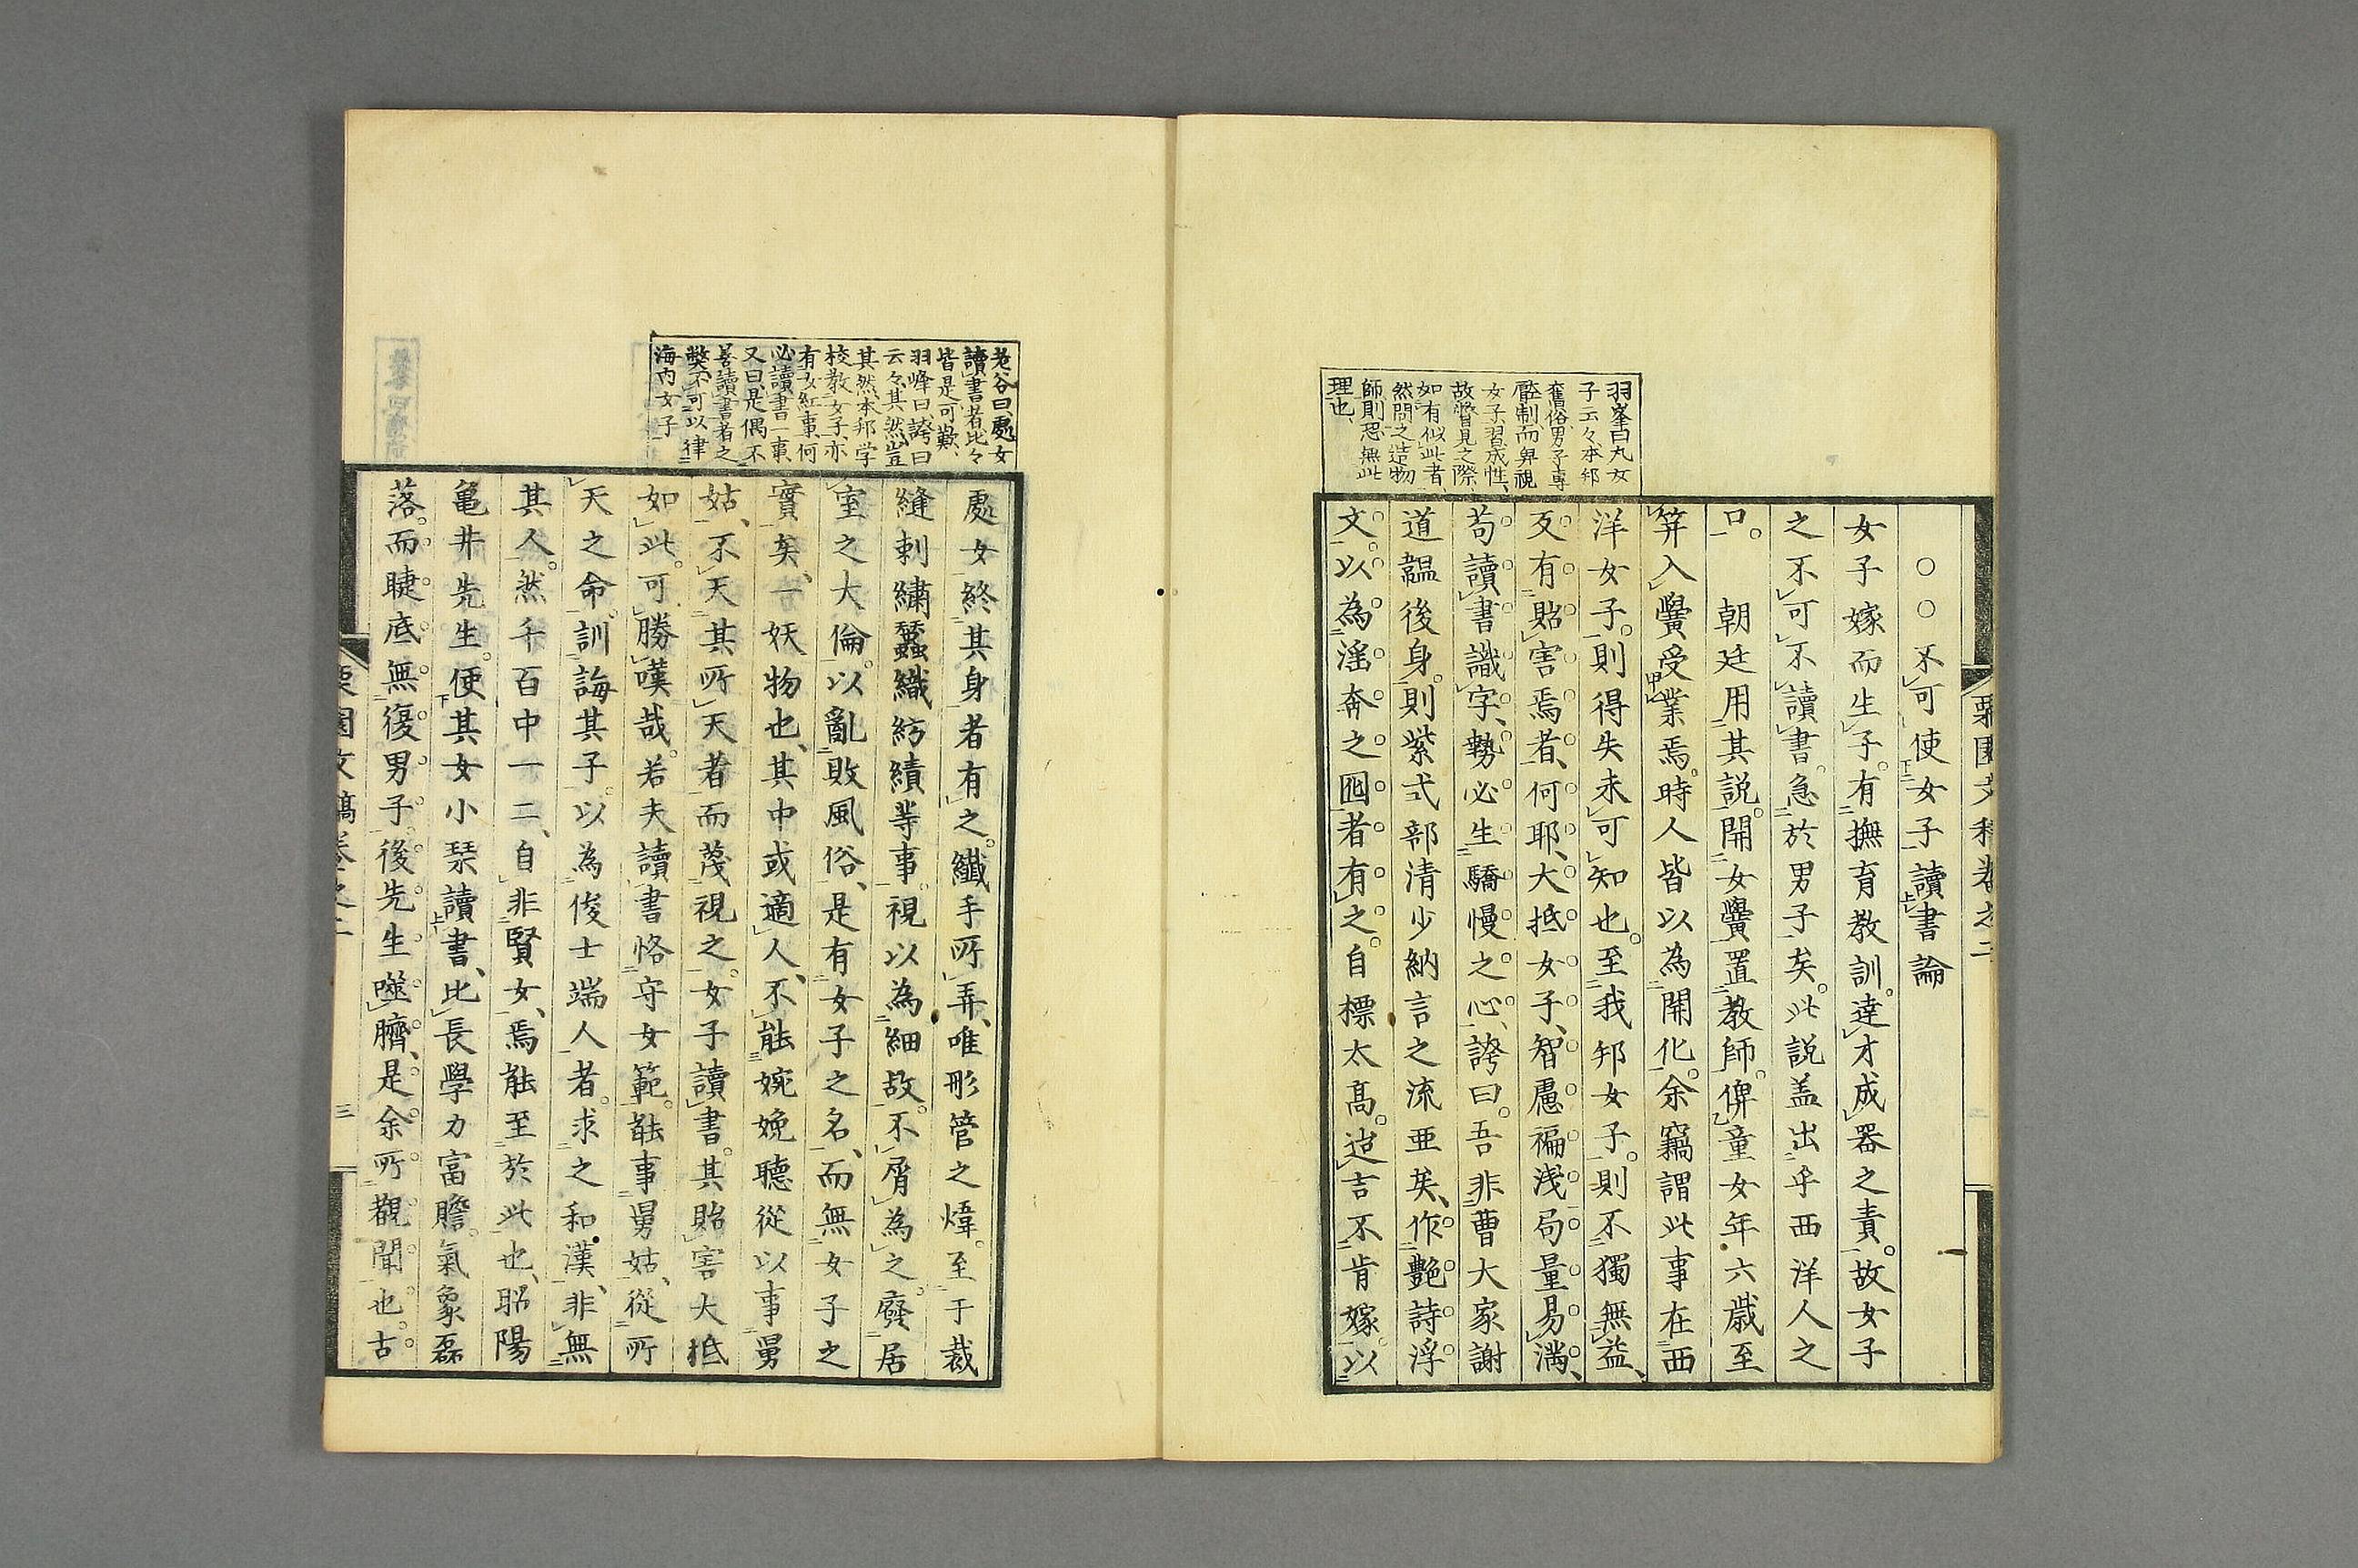 羽峯曰凡女
子云々本邦
舊俗男子専
壓制而卑視
女子習成性、
故瞥見之際、
如有似此者、
然問之造物
師則恐無此
理也、
○○不可使女子讀書論
女子嫁而生子。有撫育教訓。達才成器之責。故女子
之不可不讀書。急於男子矣。此説盖出乎西洋人之
口。　朝廷用其説。開女黌置教師。俾童女年六歳至
笄入黌受業焉。時人皆以為開化。余竊謂此事在西
洋女子。則得失未可知也。至我邦女子。則不獨無益、
反有貽害焉者、何耶、大抵女子、智慮褊淺局量易満、
苟讀書識字、勢必生驕慢之心、誇曰。吾非曹大家謝
道韞後身。則紫式部清少納言之流亜矣、作艶詩浮
文。以為淫奔之囮者有之。自標太高。迨吉不肯嫁。以
老谷曰處女
讀書者比々
皆是可歎、
羽峰曰誇曰
云々其然豈
其然本邦学
校教女子、亦
有女紅事、何
必讀書一事、
又曰、是偶不
善讀書者之
弊、不可以律
海内女子
處女終其身者有之。纖手所弄、唯彤管之煒。至于裁
縫刺繍蠶織紡績等事。視以為細故。不屑為之。廢居
室之大倫。以亂敗風俗、是有女子之名、而無女子之
實矣、一妖物也、其中或適人、不能婉娩聴従以事舅
姑、不天其所天者、而蔑視之。女子讀書。其貽害大抵
如此。可勝嘆哉。若夫讀書恪守女範。能事舅姑、従所
天之命。訓誨其子。以為俊士端人者。求之和漢、非無
其人。然千百中一二、自非賢女、焉能至於此也、昭陽
亀井先生。使其女小琹讀書、比長學力富贍。氣象磊
落。而睫底無復男子。後先生噬臍、是余所觀聞也。古
栗園文稿巻之二
三